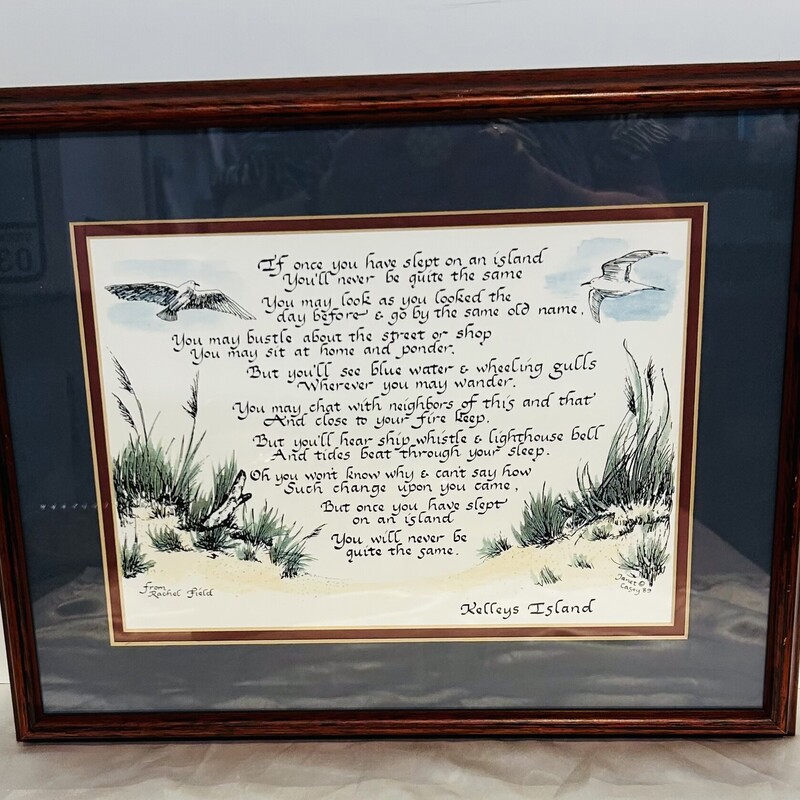 If once you have slept on an island
You'll never be quite the same
You may look as you looked the
day before & go by the same old name,
You may bustle about the street or shop
You may sit at home and ponder.
But you'll see blue water & wheeling gulls
Wherever you may wander.
You may chat with neighbors of this and that
And close to your fire keep.
But you'll hear ship whistle & lighthouse bell
And tides beat through your sleep.
Oh you won't know why & can't say how
Such change upon you came,
But once you have slept
on an island
You will never be
quite the same.
from
Rachel Field
Janet ©
Casey 89
Kelleys Island
03